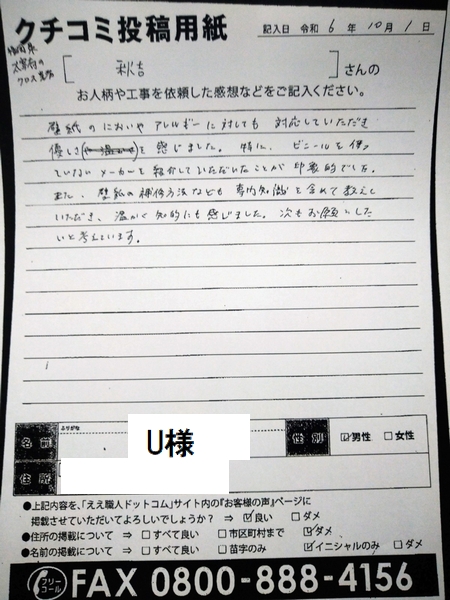 クチコミ投稿用紙
記入日 令和 6 年 10 月 1 日
福岡県
太宰府の
クロス
[ 秋吉 ] さんの
お人柄や工事を依頼した感想などをご記入ください。
壁紙のにおいやアレルギーに対しても対応していただき
優しさ を感じました。特に、ビニールを使っ
ていないメーカーを紹介していただいたことが印象的でした。
また、壁紙の補修方法なども専門知識を含めて教えて
いただき、温かく知的にも感じました。次もお願いした
いと考えています。
ふりがな
名前 U様 性別 ☑男性 □女性
住所
●上記内容を、「ええ職人ドットコム」サイト内の『お客様の声』ページに
掲載させていただいてよろしいでしょうか？ ⇒ ☑良い □ダメ
●住所の掲載について ⇒ □すべて良い □市区町村まで ☑ダメ
●名前の掲載について ⇒ □すべて良い □苗字のみ ☑イニシャルのみ □ダメ
フリーコール FAX 0800-888-4156